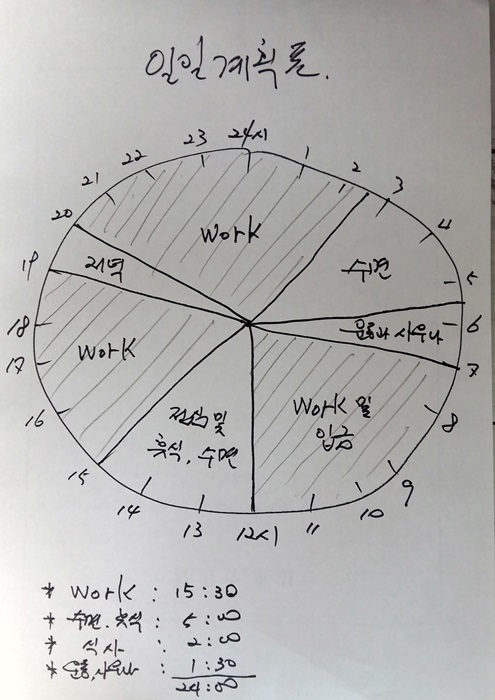 일일계획표.
24시
1
2
3
4
5
6
7
8
9
10
11
12시
13
14
15
16
17
18
19
20
21
22
23
Work
수면
운동과 사우나
Work 및
입금
점심 및
휴식, 수면
Work
저녁
* Work : 15:30
* 수면.휴식 : 5:00
* 식사 : 2:00
* 운동,사우나 : 1:30
24:00